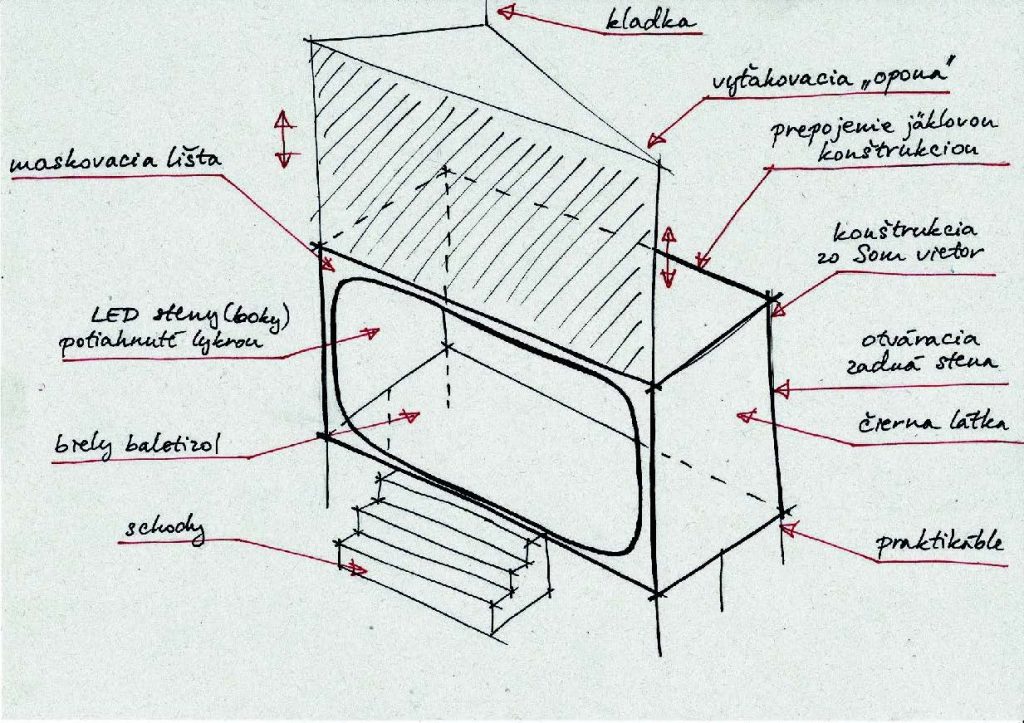 kladka
vyťahovacia „opona“
prepojenie jäklovou
konštrukciou
maskovacia lišta
konštrukcia
zo Som vietor
LED steny (boky)
potiahnuté lykrou
otváracia
zadná stena
čierna látka
biely baletizol
schody
praktikáble